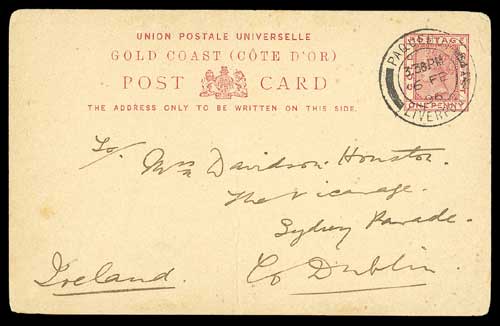 UNION POSTALE UNIVERSELLE
GOLD COAST (CÔTE D'OR)
POST CARD
THE ADDRESS ONLY TO BE WRITTEN ON THIS SIDE.
POSTAGE
ONE PENNY
PAQUEBOT
3.38 PM
LIVERPOOL
To/ Mrs Davidson-Houston.
The Vicarage.
Sydney Parade.
Co Dublin.
Ireland.